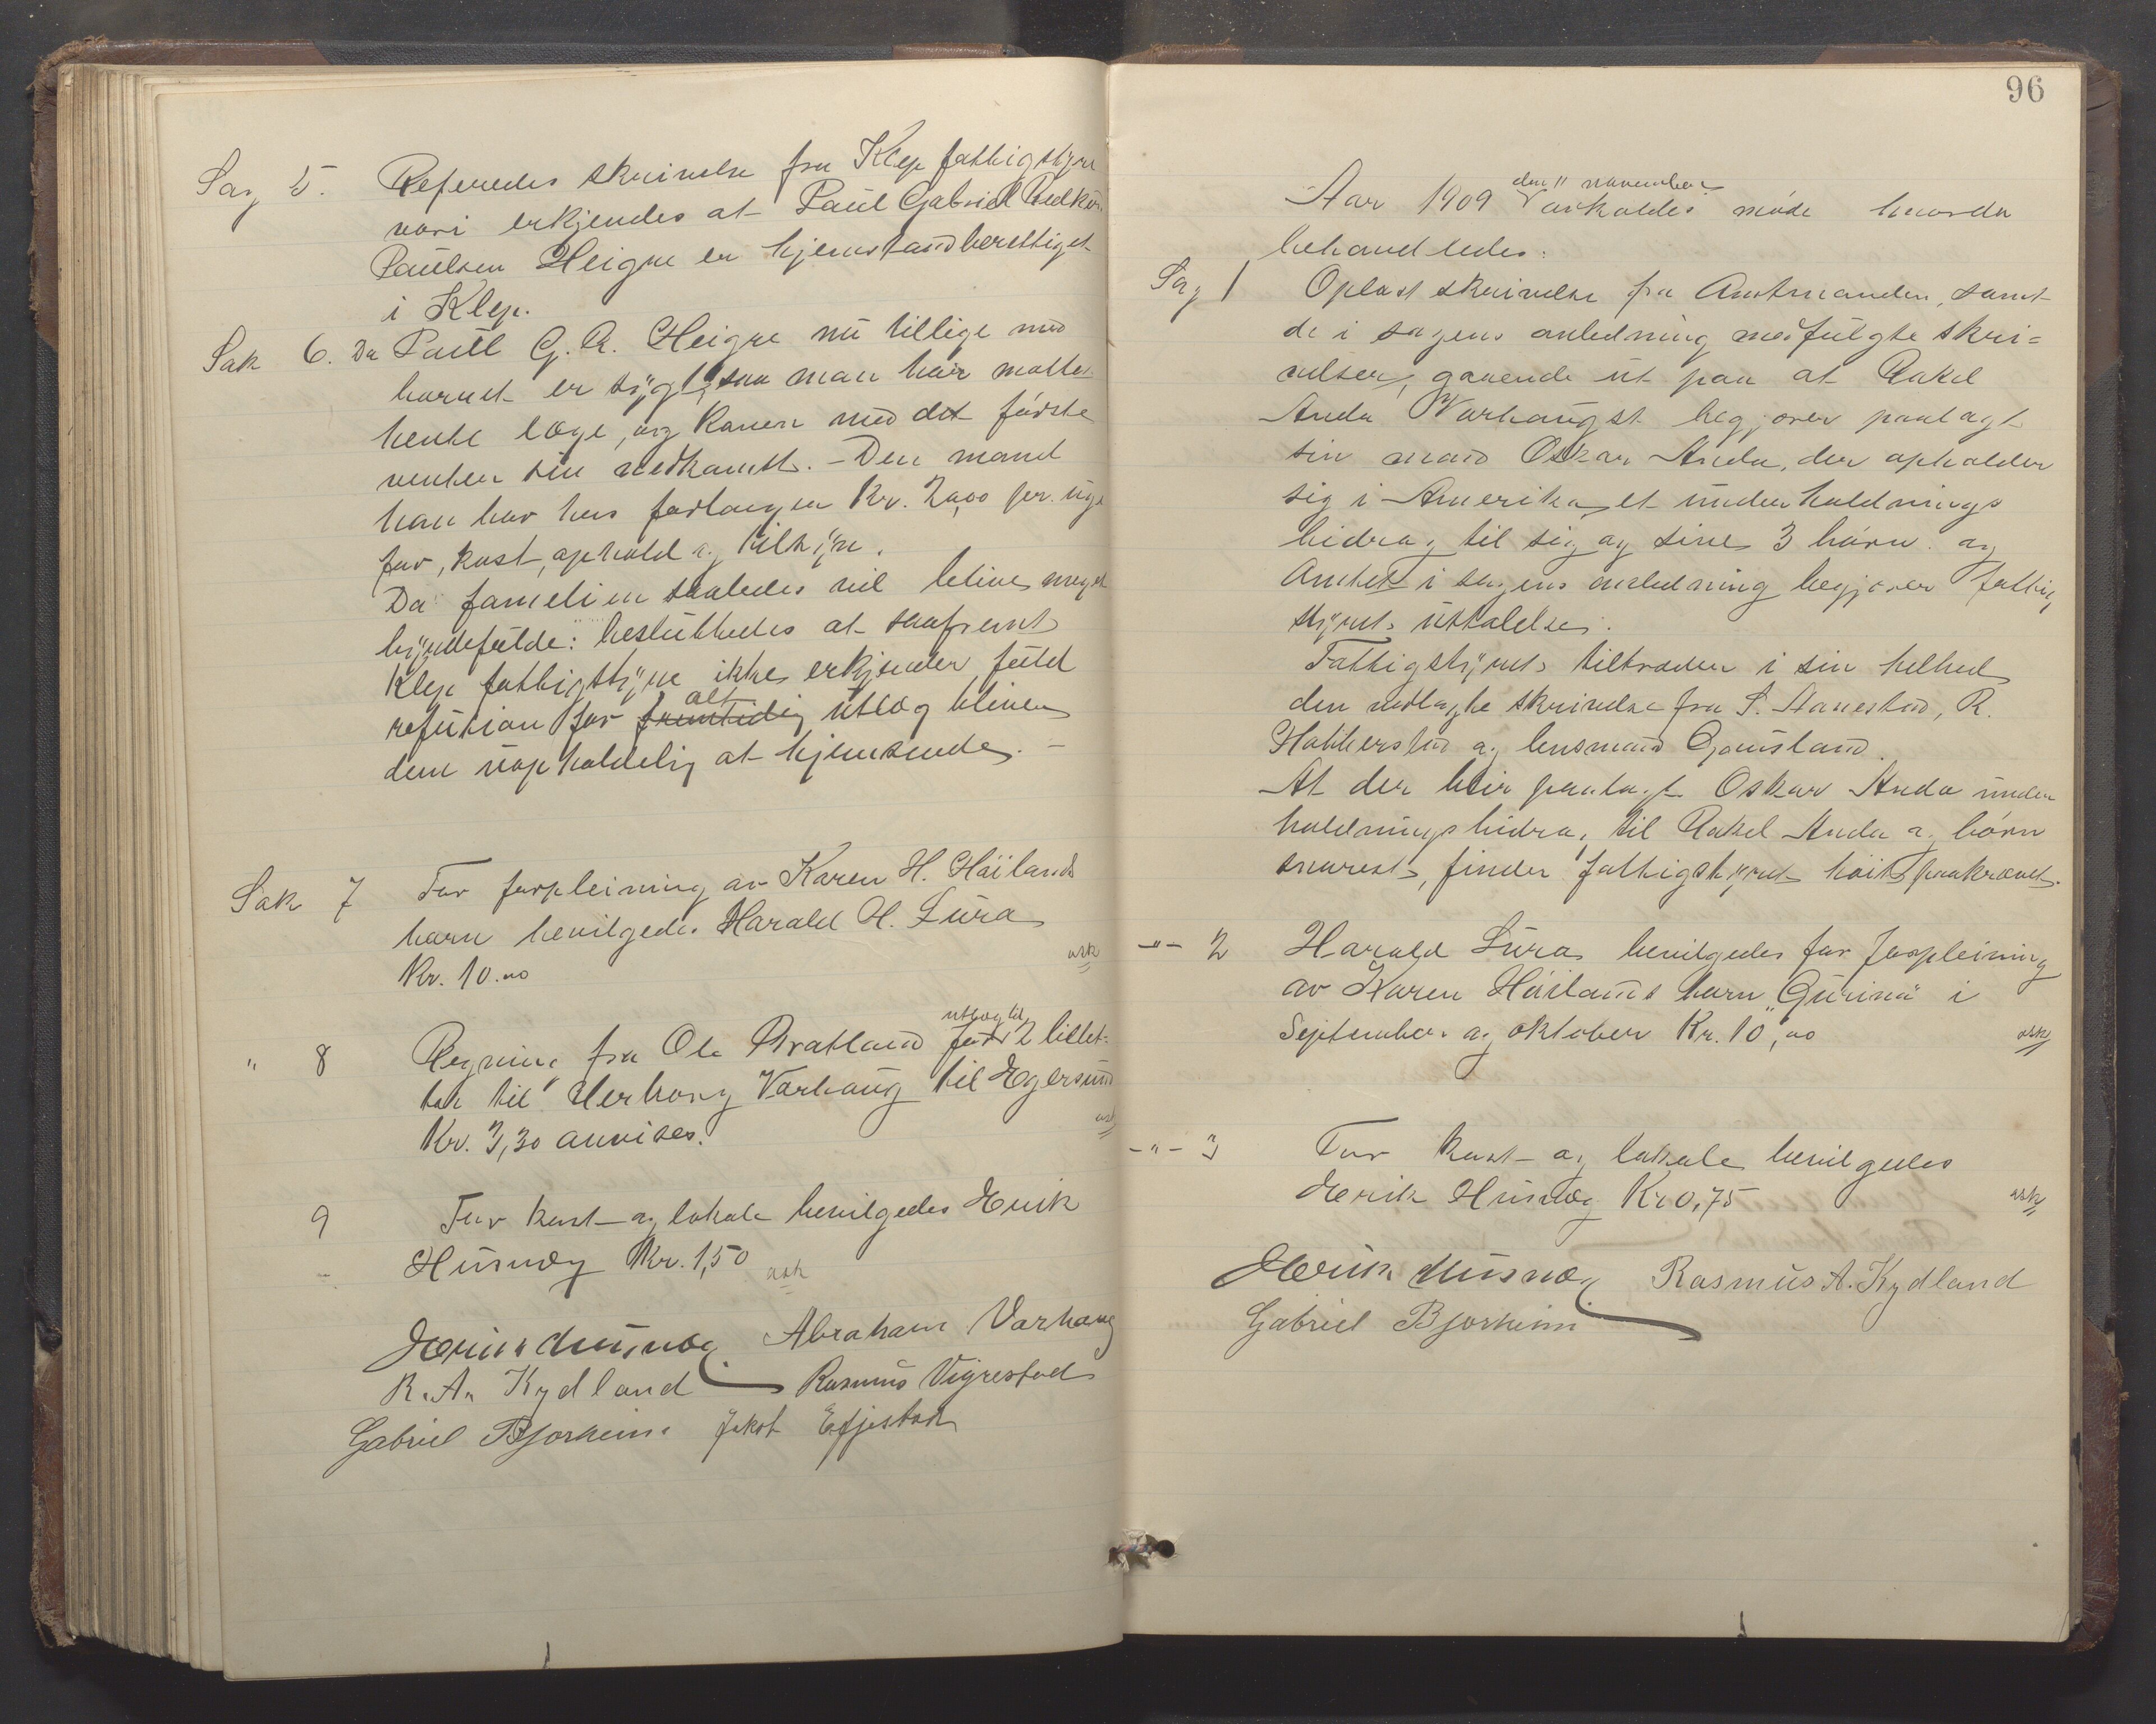 Sag 5. Refereredes skrivelse fra Klep fattigstyre
vori erkjendes at Paul Gabriel
Paulsen Heigre er hjemstandberettiget
i Klep.
Sak 6. Da Paul G. R. Heigre nu tillige med
barnet er sygt, saa man har maattet
hente læge, og konen med det første
venter sin nedkomst. – Den mand
han bor hos forlanger Kr. 20,00 pr. uge
for, kost, ophold og tilsyn.
Da familien saaledes vil blive meget
byrdefulde: besluttedes at saafremt
Klep fattigstyre ikke erkjender fuld
refusion for alt fremtidig utlæg bliver
dem uopholdelig at hjemsende. –
Sak 7 For forpleining av Karen H. Høilands
barn bevilgedes Harald H. Lura
Kr. 10.00 ask
" 8 Regning fra Ole Bratland utlæg til 2 billet-
ter til Herborg Varhaug til Egersund
Kr. 3,30 anvises. ask
9 For kost og lokale bevilgedes Erik
Husvæg Kr. 1,50 ask
Erik Husvæg Abraham Varhaug
R. A. Kydland Rasmus Vigrestad
Gabriel Bjorheim Jakob
96
Aar 1909 den 11 november avholdes møde hvorda
behandledes:
Sag 1 Oplæst skrivelse fra Amtmanden, samt
de i sagens anledning medfulgte skri=
velser, gaaende ut paa at Rakel
Anda Varhaugst begjærer paalagt
sin mand Oskar Anda, der opholder
sig i Amerika, et underholdnings
bidrag til sig og sine 3 børn. og
Amtet i sagens anledning begjærer fattig
styrets uttalelse.
Fattigstyret tiltræder i sin helhed
den vedlagte skrivelse fra S. Aanestad, R.
Habberstad og lensmand Gausland.
At der blir paalagt Oskar Anda under
holdningsbidrag til Rakel Anda og børn
snarest, finder fattigstyret høist paakrævet.
-"- 2 Harald Lura bevilgedes for forpleining
av Karen Høilands barn "Gurina" i
September og oktober Kr. 10,00 ask
-"- 3 For kost og lokale bevilgedes
Erik Husvæg Kr 0,75 ask
Erik Husvæg Rasmus A. Kydland
Gabriel Bjorheim